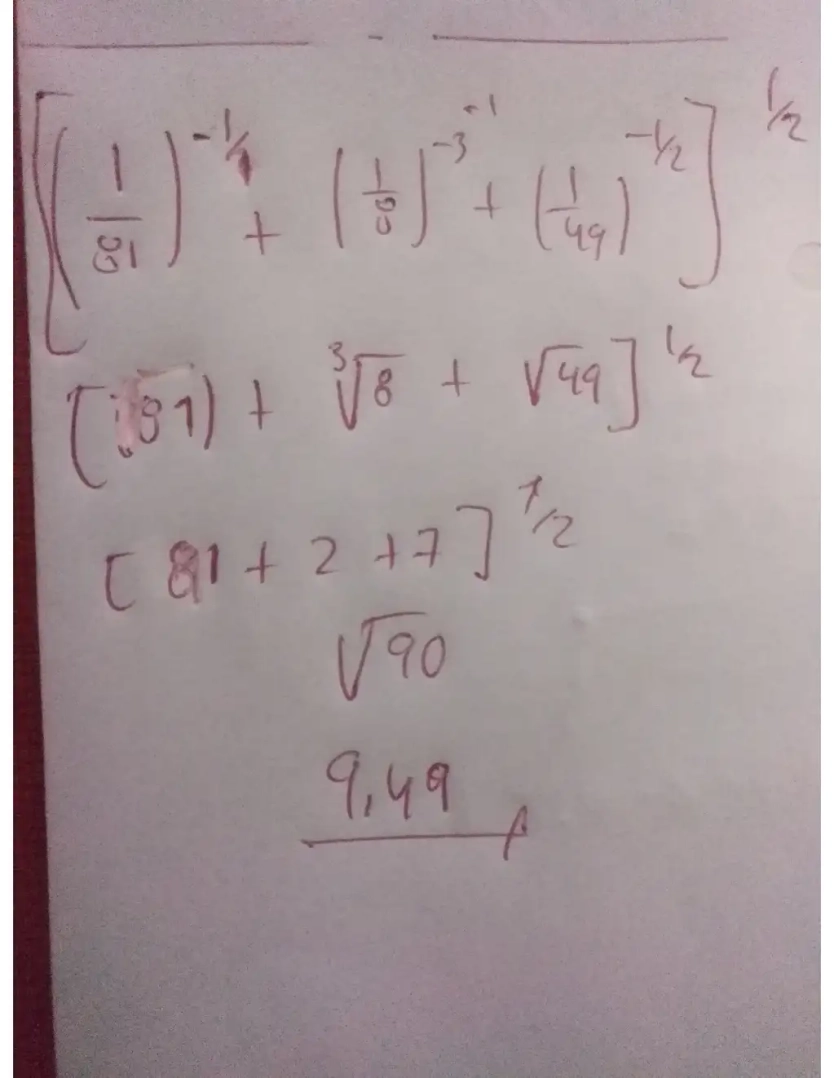 [(1/81)^-1/1 + (1/8)^-3^-1 + (1/49)^-1/2]^1/2
[(81) + ∛8 + √49]^1/2
[81 + 2 + 7]^1/2
√90
9,49